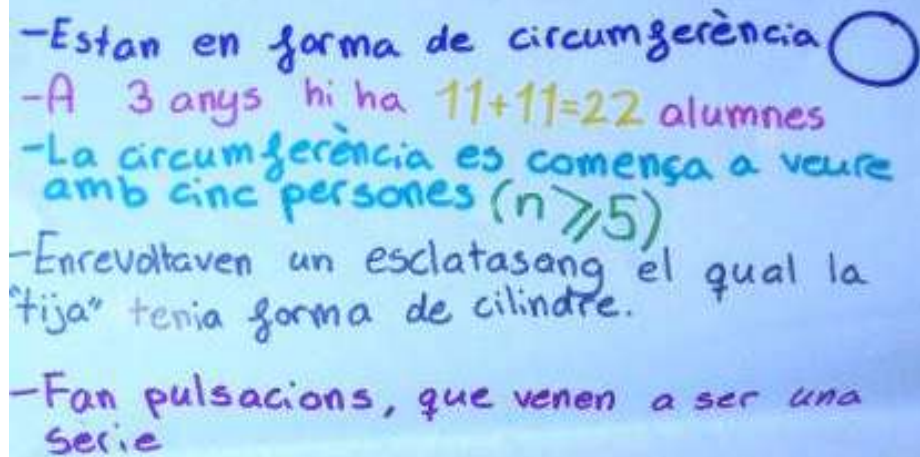 -Estan en forma de circumferència
-A 3 anys hi ha 11+11=22 alumnes
-La circumferència es comença a veure
amb cinc persones (n⩾5)
-Enrevoltaven un esclatasang el qual la
"tija" tenia forma de cilindre.
-Fan pulsacions, que venen a ser una
serie